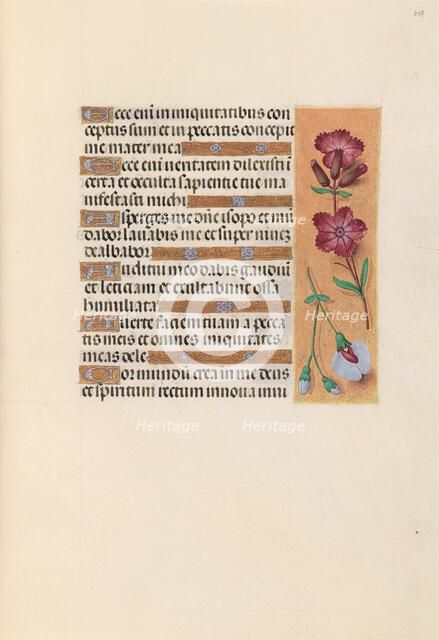 247
Ecce eni in iniquitatibus con
ceptus sum et in peccatis concepit
me mater mea
Ecce eni veritatem dilexisti
certa et occulta sapientie tue ma
nifestasti michi
Asperges me dne ysopo et mu
dabor lavabis me et super nivez
dealbabor
Auditui meo dabis gaudiu
et leticiam et exultabunt ossa
humiliata
Averte faciem tuam a pecca
tis meis et omnes iniquitates
meas dele
Cor mundu crea in me deus
et spiritum rectum innova in vi
Heritage Heritage
Heritage Heritage Heritage
Heritage Heritage